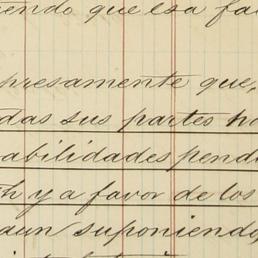 endo que esa fa
presamente que,
das sus partes ha
abilidades pend
h y a favor de los
aun suponiendo,